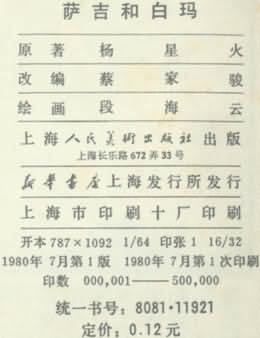 萨吉和白玛
原著 杨星火
改编 蔡家骏
绘画 段海云
上海人民美術出版社出版
上海长乐路672弄33号
新华書店上海发行所发行
上海市印刷十厂印刷
开本 787×1092 1/64 印张 1 16/32
1980年7月第1版 1980年7月第1次印刷
印数 000,001——500,000
统一书号：8081·11921
定价：0.12元